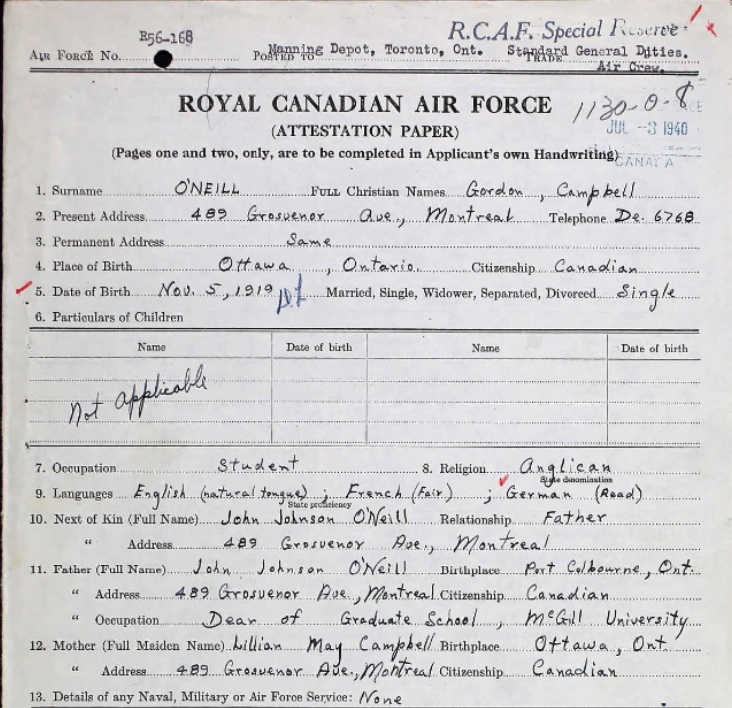 R56-168
R.C.A.F. Special Reserve
AIR FORCE No. POSTED TO Manning Depot, Toronto, Ont. TRADE Standard General Duties.
Air Crew.
ROYAL CANADIAN AIR FORCE 1130-0-8
(ATTESTATION PAPER) JUL -3 1940
(Pages one and two, only, are to be completed in Applicant's own Handwriting)
CANADA
1. Surname O'NEILL FULL Christian Names Gordon, Campbell
2. Present Address 489 Grosvenor Ave., Montreal Telephone De. 6768
3. Permanent Address Same
4. Place of Birth Ottawa, Ontario. Citizenship Canadian
5. Date of Birth Nov. 5, 1919 Married, Single, Widower, Separated, Divorced Single
6. Particulars of Children
Name Date of birth Name Date of birth
Not Applicable
7. Occupation Student 8. Religion Anglican
State denomination
9. Languages English (natural tongue); French (Fair); German (Read)
State proficiency
10. Next of Kin (Full Name) John Johnson O'Neill Relationship Father
" Address 489 Grosvenor Ave., Montreal
11. Father (Full Name) John Johnson O'Neill Birthplace Port Colbourne, Ont.
" Address 489 Grosvenor Ave., Montreal Citizenship Canadian
" Occupation Dean of Graduate School, McGill University
12. Mother (Full Maiden Name) Lillian May Campbell Birthplace Ottawa, Ont.
" Address 489 Grosvenor Ave., Montreal Citizenship Canadian
13. Details of any Naval, Military or Air Force Service: None